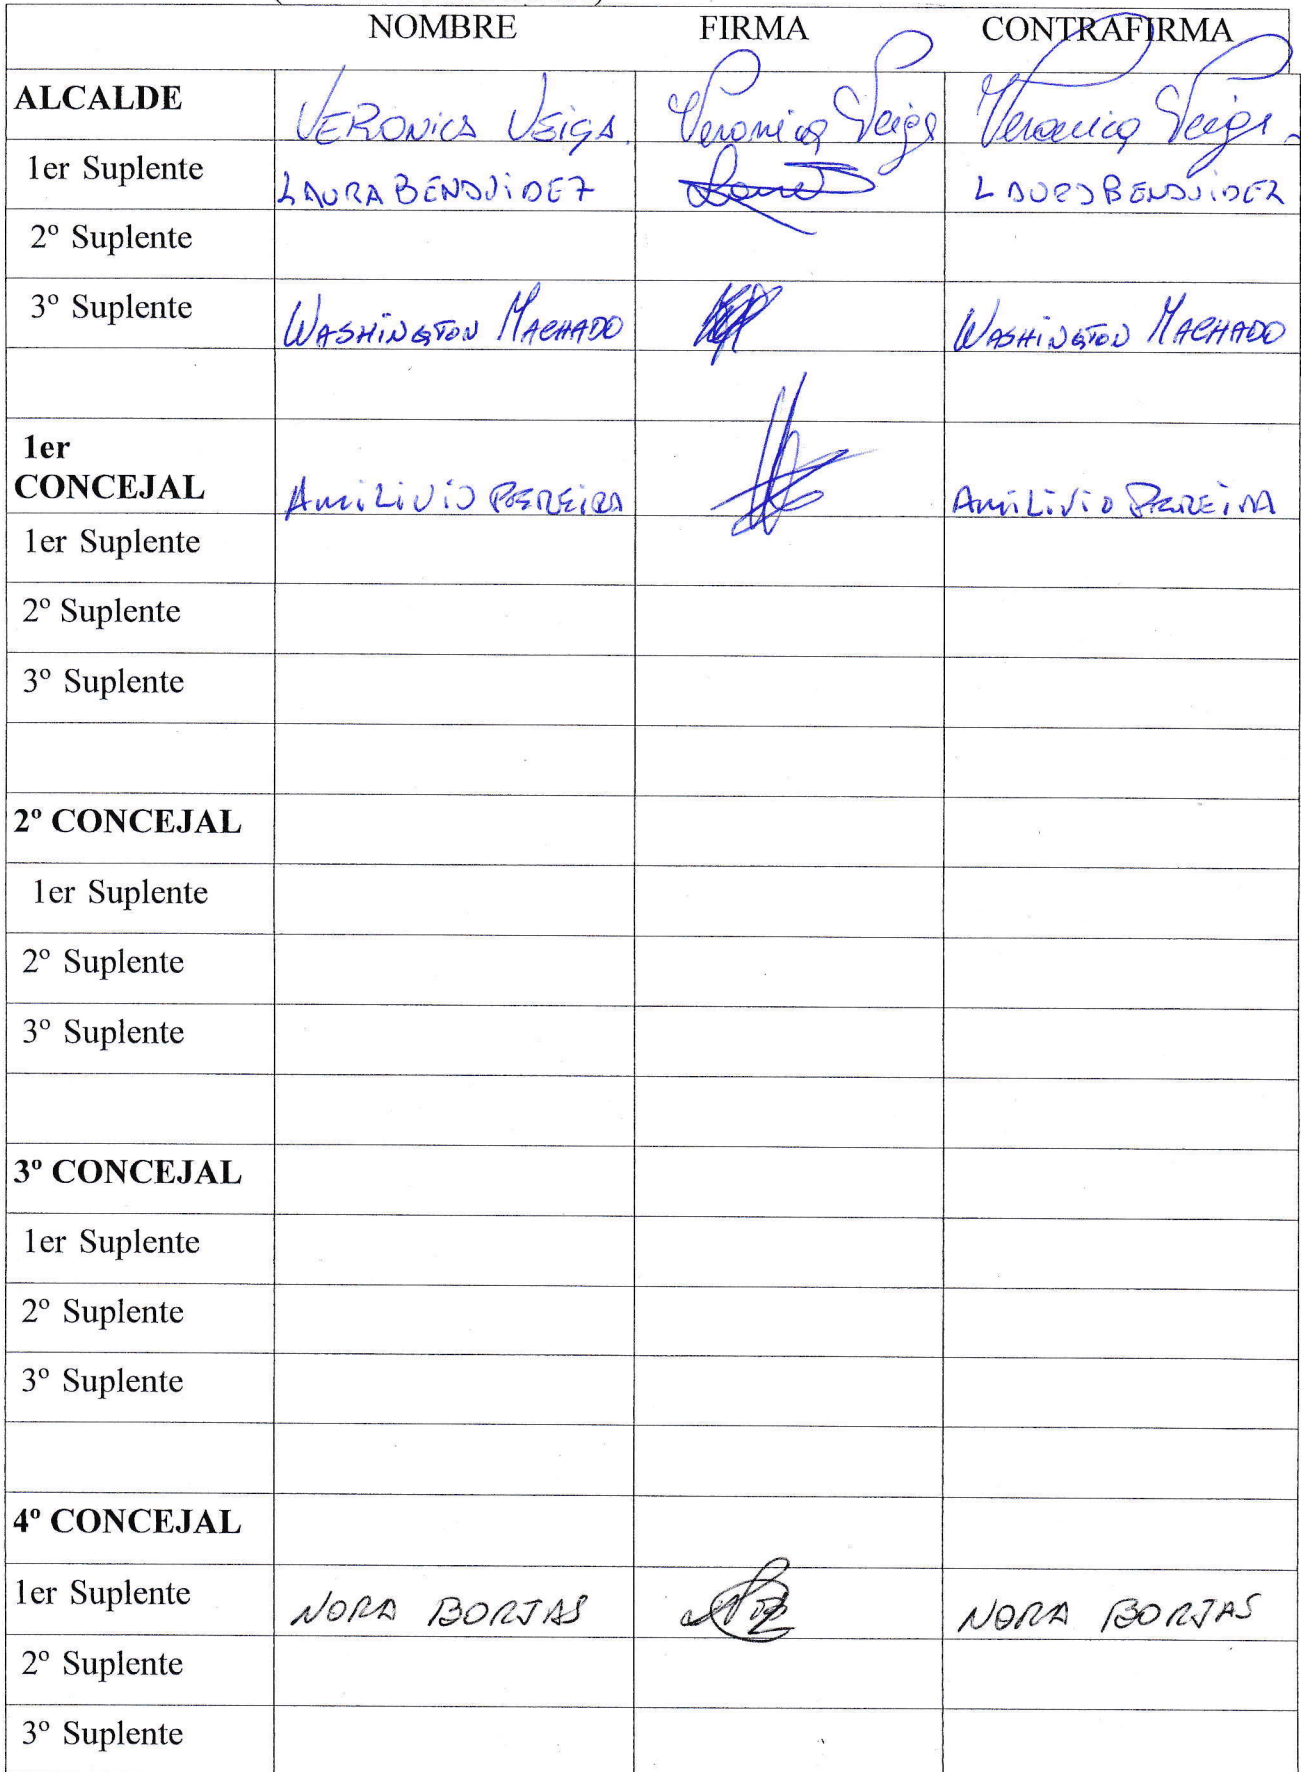 NOMBRE FIRMA CONTRAFIRMA
ALCALDE VERONICA VEIGA Veronica Veiga Veronica Veiga
1er Suplente LAURA BENAVIDEZ LAURA BENAVIDEZ
2º Suplente
3º Suplente WASHINGTON MACHADO WASHINGTON MACHADO
1er
CONCEJAL AmiLiViO PEREiRA AmiLiViO PEREiRA
1er Suplente
2º Suplente
3º Suplente
2º CONCEJAL
1er Suplente
2º Suplente
3º Suplente
3º CONCEJAL
1er Suplente
2º Suplente
3º Suplente
4º CONCEJAL
1er Suplente NORA BORJAS NORA BORJAS
2º Suplente
3º Suplente